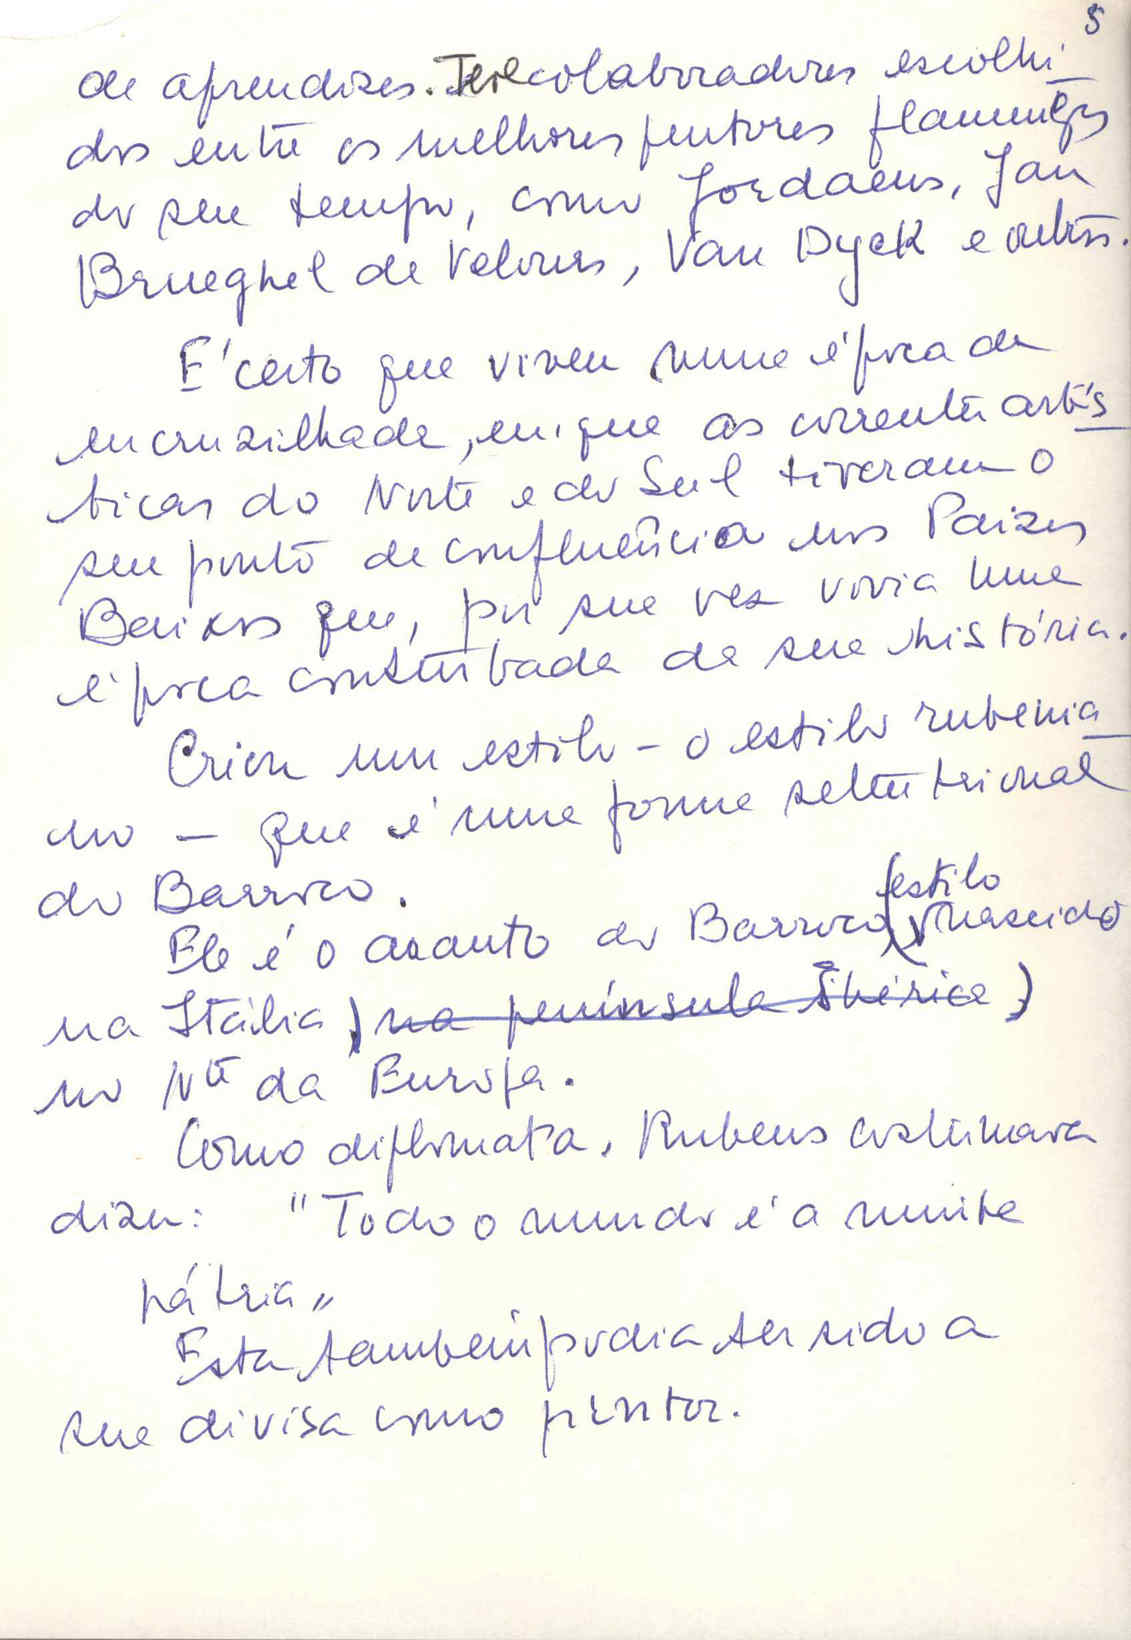 5
de aprendizes. Teve colaboradores escolhi
dos entre os melhores pintores flamengos
do seu tempo, como Jordaens, Jan
Brueghel de Velours, Van Dyck e outros.
É certo que viveu numa época de
encruzilhada, em que as correntes artís
ticas do Norte e do Sul tiveram o
seu ponto de confluência nos Paizes
Baixos que, por sua vez vivia uma
época conturbada da sua história.
Criou um estilo - o estilo rubenia
no - que é uma forma setentrional
do Barroco.
estilo
Ele é o arauto do Barroco, (nascido
na Itália) na península Ibérica,)
no Nte da Europa.
Como diplomata, Rubens costumava
dizer: "Todo o mundo é a minha
pátria"
Esta também podia ter sido a
sua divisa como pintor.